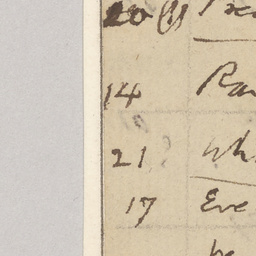 20 (1)
14 Ra
21 wh
17 Eve
be